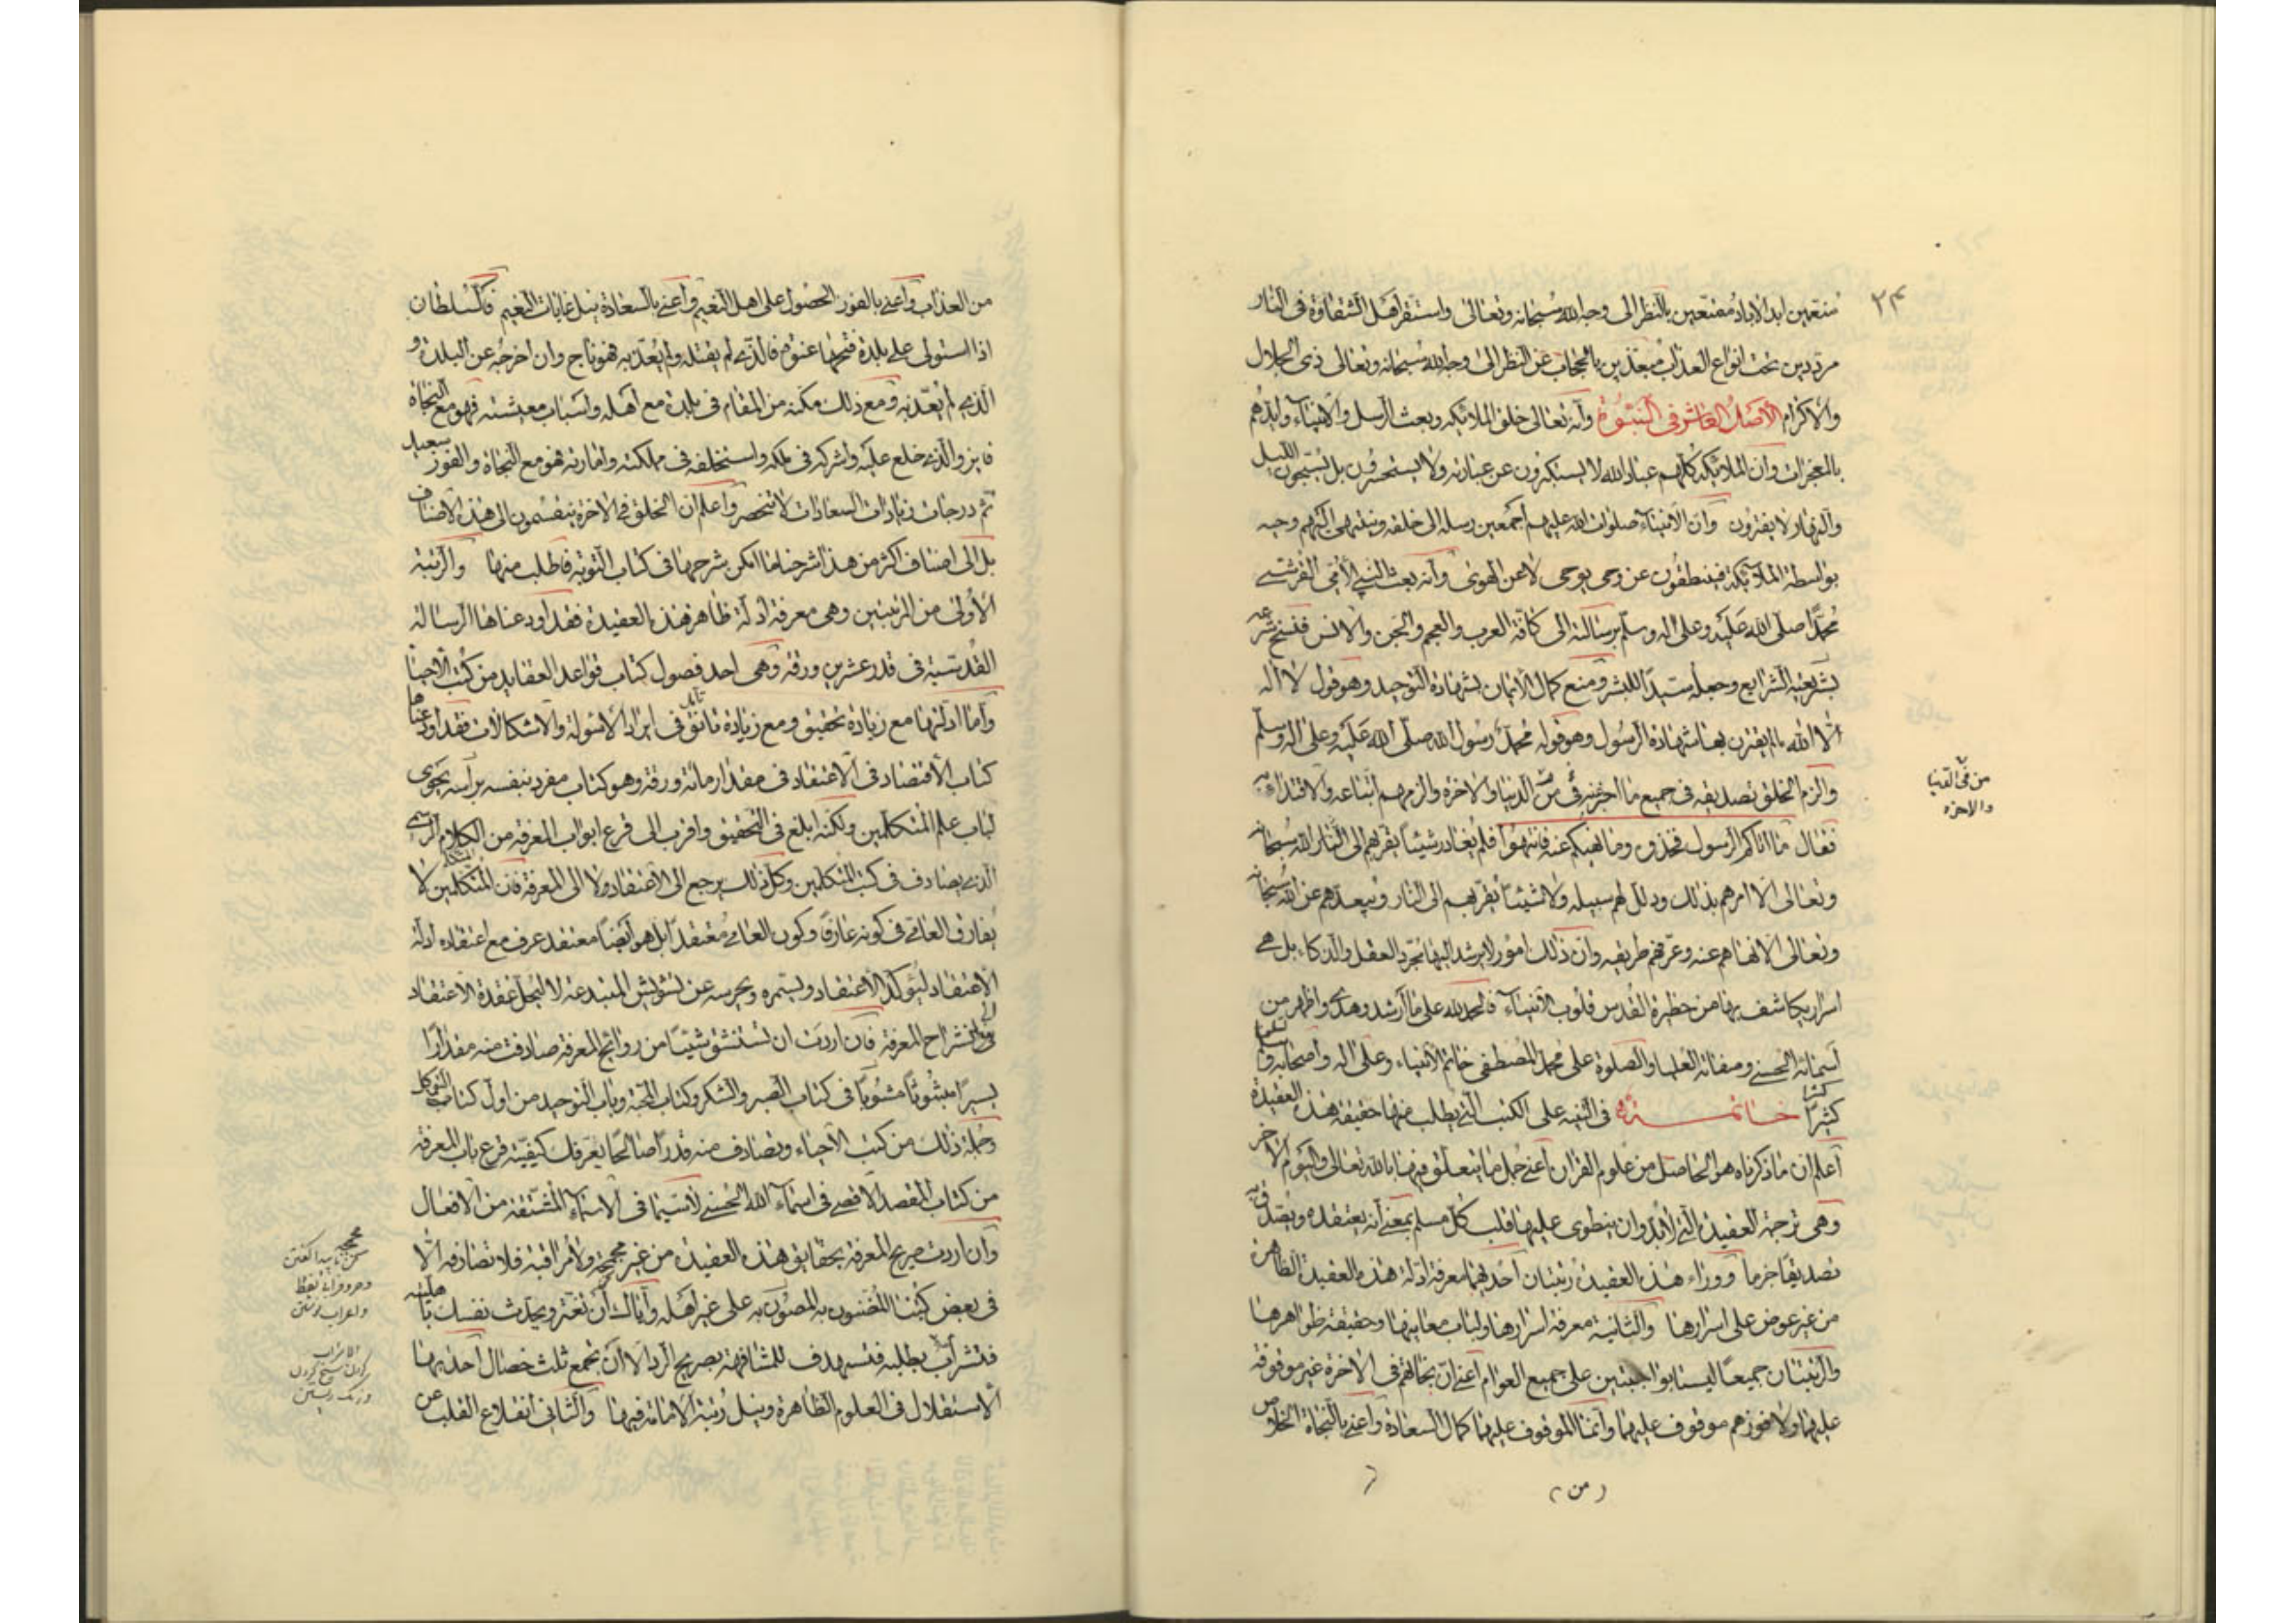 ٢٣
متنعمين ابد الاباد ممتعين بالنظر الى وجه الله سبحانه وتعالى واستقر اهل الشقاوة فى النار
مرددين تحت انواع العذاب مبعدين بالحجاب عن النظر الى وجه الله سبحانه وتعالى ذى الجلال
والاكرام الأصل العاشر فى النبوة وأنه تعالى خلق الملائكه وبعث الرسل والانبياء وايدهم
بالمعجزات وان الملائكة كلهم عباد الله لا يستكبرون عن عبادته ولا يستحسرون بل يسبحون الليل
والنهار لا يفترون وان الأنبياء صلوات الله عليهم أجمعين رسله الى خلقه وينتهى اليهم وحيه
بواسطة الملائكة فينطقون عن وحى يوحى لا عن الهوى وأنه بعث النبي الأمى القرشى
محمدا صلى الله عليه وعلى اله وسلم برسالته الى كافة العرب والعجم والجن والانس فنسخ شرعه
بشريعته الشرايع وجعله سيد البشر ومنع كمال الأيمان بشهادة التوحيد وهو قول لا اله
الا الله ما لم يقترن بها شهادة الرسول وهو قوله محمد رسول الله صلى الله عليه وعلى اله وسلم
والزم الخلق تصديقه فى جميع ما اخبر عنه من الدنيا والاخرة والزمهم اتباعه والاقتداء به
فقال ما اتاكم الرسول فخذوه وما نهيكم عنه فانتهوا فلم يغادر شيئا يقربهم الى الله سبحانه
وتعالى الا امرهم بذلك ودلل لهم سبيله ولا شيئا يقربهم الى النار ويبعدهم عن الله سبحانه
وتعالى الا نهاهم عنه وعرفهم طريقه وان ذلك امور لا يرشد اليها مجرد العقل والذكاء بل هى
اسرار يكاشف بها من حظيرة القدس قلوب الأنبياء فالحمد لله على ما أرشد وهدى واظهر من
أسمائه الحسنى وصفاته العليا والصلوة على محمد المصطفى خاتم الأنبياء وعلى اله واصحابه وسلم تسليما
كثيرا خاتمــة فى التنبيه على الكتب التى يطلب منها حقيقة هذه العقيدة
أعلم ان ما ذكرناه هو الحاصل من علوم القران أعنى جمل ما يتعلق منها بالله تعالى واليوم الاخر
وهى ترجمة العقيدة التى لا بد وان ينطوى عليها قلب كل مسلم بمعنى أنه يعتقده ويصدق به
تصديقا جزما ووراء هذه العقيدة رتبتان أحديهما معرفة ادلة هذه العقيدة الظاهرة
من غير غوص على اسرارها والثانية معرفة اسرارها ولباب معانيها وحقيقة ظواهرها
والرتبتان جميعا ليستا بواجبتين على جميع العوام أعنى ان نجاتهم فى الاخرة غير موقوفة
عليهما ولا فوزهم موقوف عليهما وانما الموقوف عليهما كمال السعادة واعنى بالنجاة الخلاص
من
من فى الدنيا
والاخره
من العذاب وأعنى بالفوز الحصول على اهل النعيم وأعنى بالسعادة نيل غايات النعيم فالسلطان
اذا استولى على بلدة فتحها عنوة فالذى لم يقتله ولم يعذبه فهو ناج وان اخرجه عن البلدة و
الذى لم يعذبه ومع ذلك مكنه من المقام فى بلدة مع أهله واسباب معيشته فهو مع النجاة
فايز والذى خلع عليه واشركه فى ملكه واستخلفه فى مملكته وامارته فهو مع النجاة والفوز سعيد
ثم درجات زيادات السعادات لا تنحصر واعلم ان الخلق فى الاخرة ينقسمون الى هذه الاصناف
بل الى اصناف اكثر من هذا شرحنا ما امكن شرحها فى كتاب التوبة فاطلب منها والرتبة
الأولى من الرتبتين وهى معرفة أدلة ظاهر هذه العقيدة فقد أودعناها الرسالة
القدسية فى قدر عشرين ورقة وهى احد فصول كتاب قواعد العقايد من كتب الاحيا
وأما ادلتها مع زيادة تحقيق ومع زيادة تانق فى ايراد الأسولة والاشكالات فقد اودعناها
كتاب الأقتصاد فى الأعتقاد فى مقدار مائة ورقة وهو كتاب مفرد بنفسه برأسه يحوى
لباب علم المتكلمين ولكنه ابلغ فى التحقيق واقرب الى قرع ابواب المعرفة من الكلام الرسمى
الذى يصادف فى كتب المتكلمين وكل ذلك يرجع الى الأعتقاد ولا الى المعرفة فان المتكلمين لا
يفارق العامى فى كونه عارفا وكون العامى معتقدا بل هو أيضا معتقد عرف مع اعتقاده ادلة
الاعتقاد ليؤكد الأعتقاد ويستمره ويحرسه عن تشويش المبتدعة لا لتنحل عقدة الأعتقاد
الى انشراح المعرفة فان اردت ان تستنشق شيئا من روائح المعرفة صادفت منه مقدارا
يسيرا مبثوثا فى كتاب الصبر والشكر وكتاب المحبة وباب التوحيد من اول كتاب التوكل
وجملة ذلك من كتب الاحياء وتصادف منه قدرا صالحا يعرفك كيفية قرع باب المعرفة
من كتاب المقصد الاقصى فى اسماء الله الحسنى لا سيما فى الاسماء المشتقة من الافعال
وان اردت صريح المعرفة بحقايق هذه العقيدة من غير مجمجة ولا مراقبة فلا تصادفه الا
فى بعض كتبنا المضنون به المصون به على غير أهله وأياك أن تغتر ويحدث نفسك باهليته
فتشراب بطلبه فتستهدف للمشافهة بصريح الرد الا أن تجمع ثلث خصال أحديها
الاستقلال فى العلوم الظاهرة ونيل رتبة الأمامة فيها والثانى أنقلاع القلب عن
مجمجة